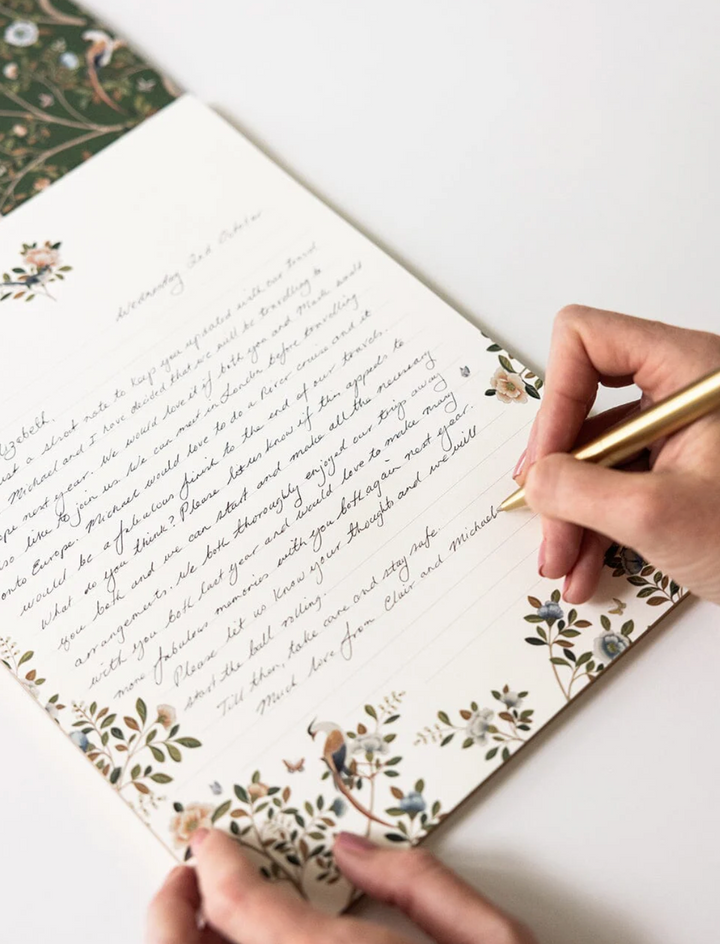 Wednesday 2nd October
lizebeth.
ust a short note to keep you updated with our travel
Michael and I have decided that we will be travelling to
ope next year. We would love it if both you and Mark would
so like to join us. We can meet in London before travelling
onto Europe. Michael would love to do a River cruise and it
would be a fabulous finish to the end of our travels.
What do you think? Please let us know if this appeals to
you both and we can start and make all the necessary
arrangements. We both thoroughly enjoyed our trip away
with you both last year and would love to make many
more fabulous memories with you both again next year.
Please let us know your thoughts and we will
start the ball rolling.
Till then, take care and stay safe.
Much love from Clair and Michael